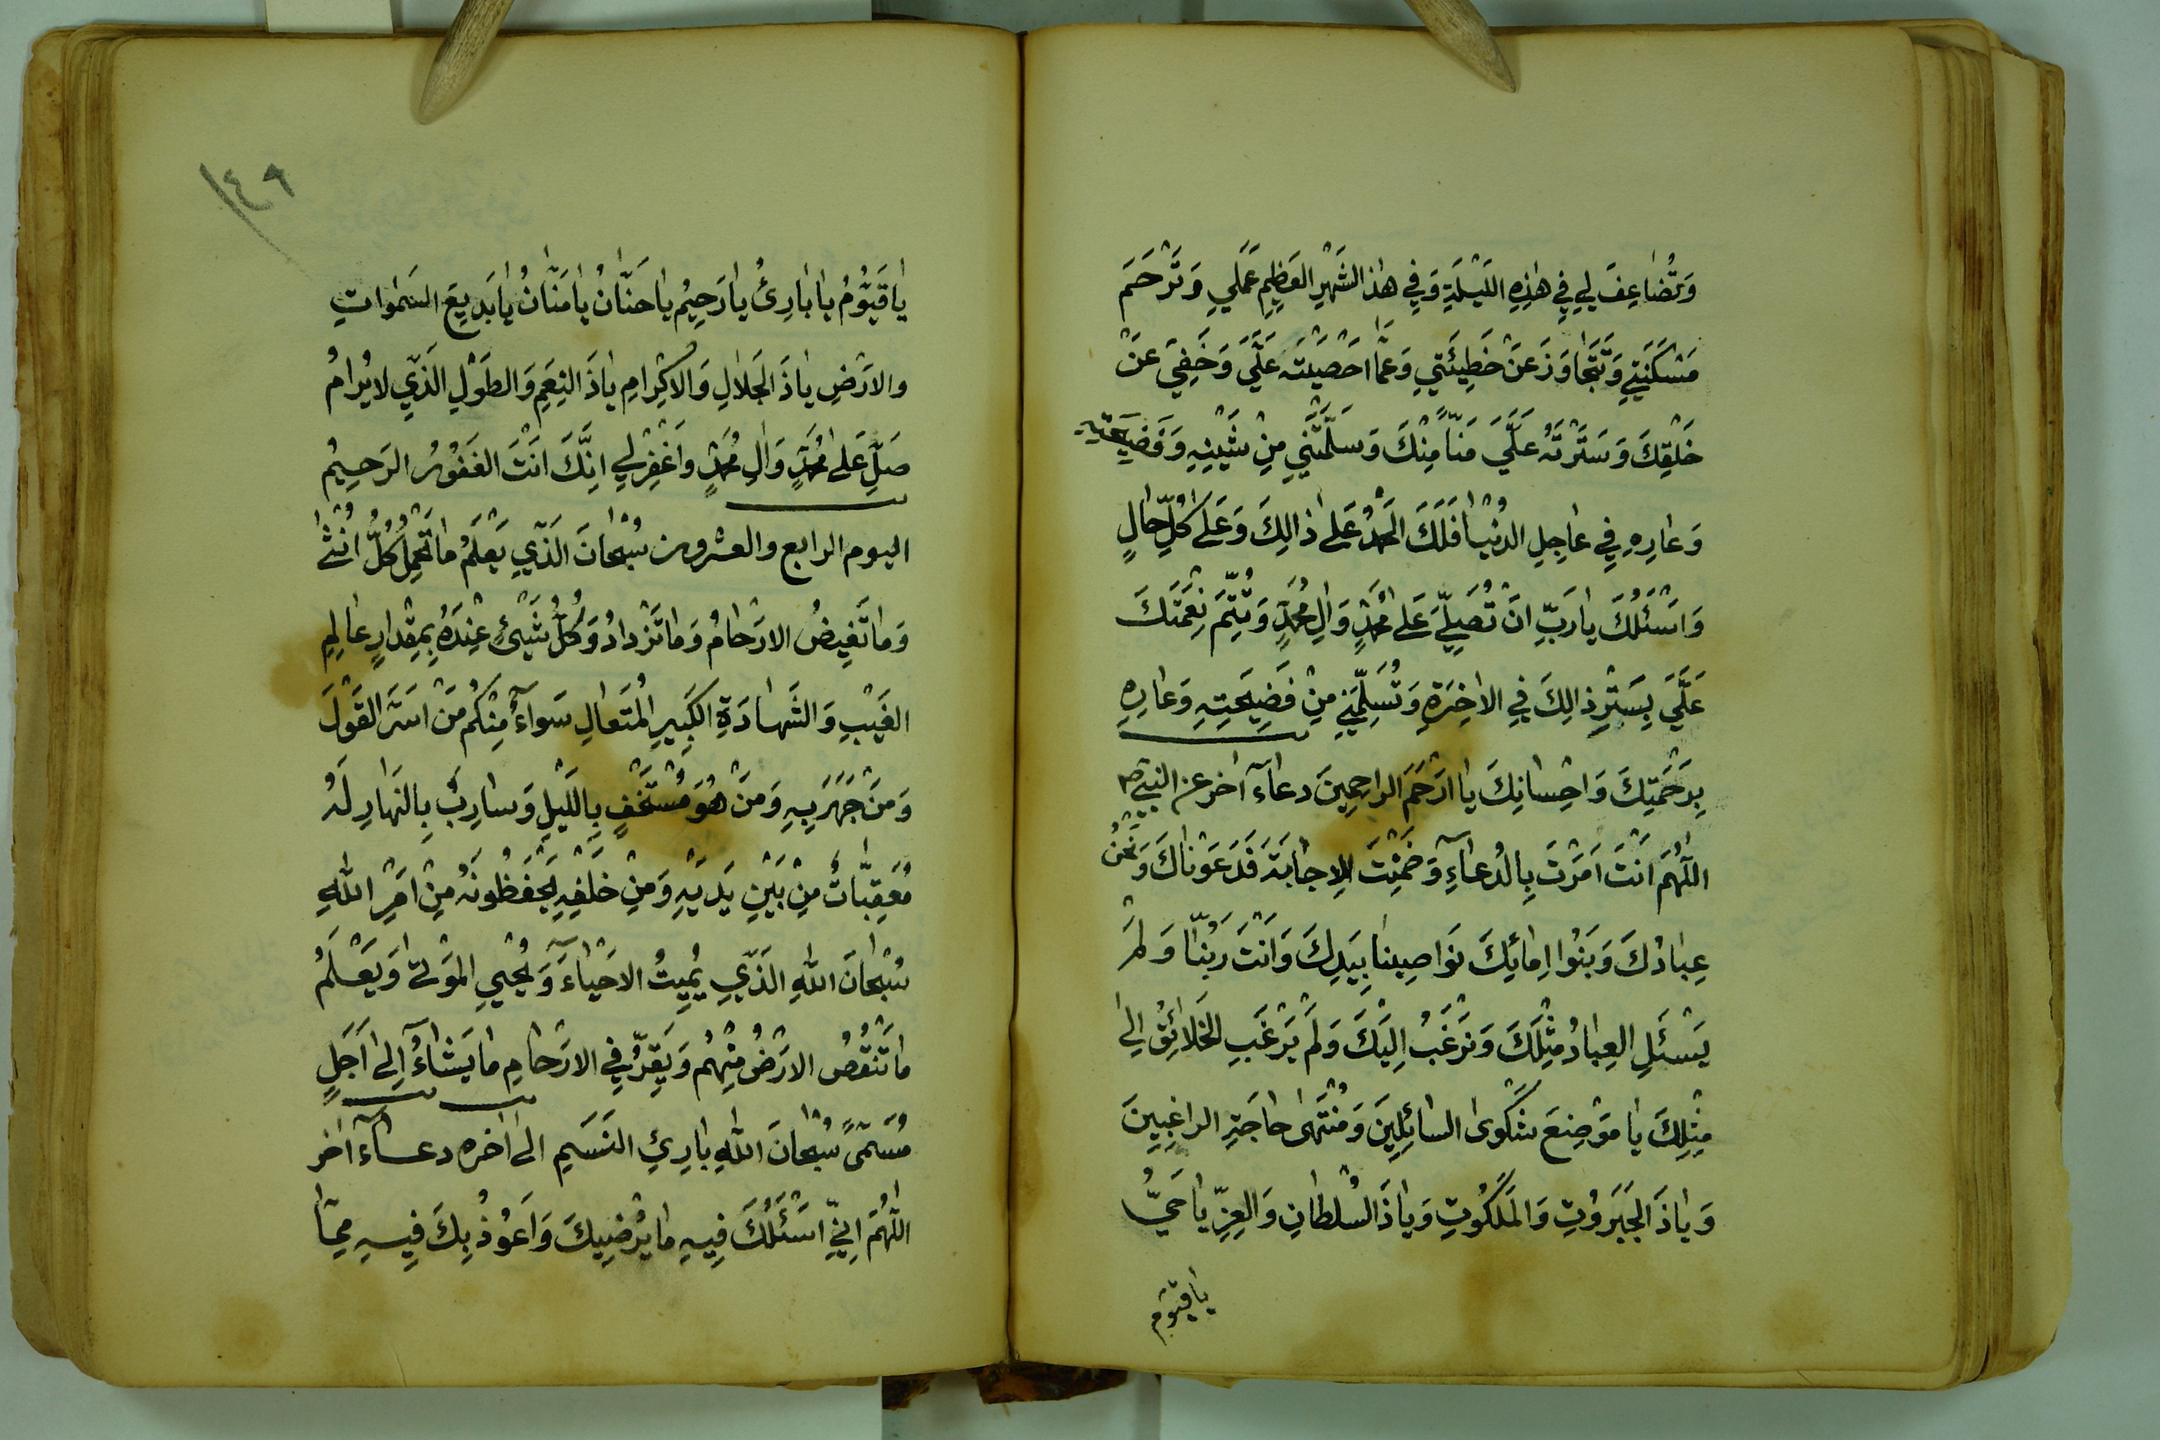 وَتُضٰاعِفَ لِي فِي هٰذِهِ اللَيْلَةِ وَفِي هٰذَا الشَهْرِ العَظِيمِ عَمَلِي وَتَرْحَمَ
مَسْكَنَتِي وَتَتَجٰاوَزَ عَنْ خَطِيئَتِي وَعَمّٰا احْصَيْتَهُ عَلَيَّ وَخَفِيَ عَنْ
خَلْقِكَ وَسَتَرْتَهُ عَلَيَّ مَنّاً مِنْكَ وَسَلَّمْتَنِي مِنْ شَيْنِهِ وَفَضِيحَتِهِ
وَعٰارِهِ فِي عٰاجِلِ الدُنْيٰا فَلَكَ الحَمْدُ عَلىٰ ذٰالِكَ وَعَلىٰ كُلِّ حٰالٍ
وَاسْئَلُكَ يٰا رَبِّ انْ تُصَلِّيَ عَلىٰ مُحَمَّدٍ وَاٰلِ مُحَمَّدٍ وَتُتِمَّ نِعْمَتَكَ
عَلَيَّ بِسَتْرِ ذٰالِكَ فِي الاٰخِرَةِ وَتُسَلِّمَنِي مِنْ فَضِيحَتِهِ وَعٰارِهِ
بِرَحْمَتِكَ وَاحْسٰانِكَ يٰا ارْحَمَ الرٰاحِمِينَ دعاء اخر عن النبي ص
اللّٰهُمَ انْتَ امَرْتَ بِالدُعٰاءِ وَضَمِنْتَ الاِجٰابَةَ فَدَعَوْنٰاكَ وَنَحْنُ
عِبٰادُكَ وَبَنُوا اِمٰائِكَ نَوٰاصِينٰا بِيَدِكَ وَانْتَ رَبُّنٰا وَلَمْ
يَسْئَلِ العِبٰادُ مِثْلَكَ وَنَرْغَبُ اِلَيْكَ وَلَمْ يَرْغَبِ الخَلٰائِقُ اِلىٰ
مِثْلِكَ يٰا مَوْضِعَ شَكْوىٰ السٰائِلِينَ وَمُنْتَهىٰ حٰاجَةِ الرٰاغِبِينَ
وَيٰا ذَا الجَبَرُوْتِ وَالمَلَكُوتِ وَيٰا ذَا السُلْطٰانِ وَالعِزِّ يٰا حَيُّ
يٰا قيّوم
١٤٩
يٰا قَيُّوْمُ يٰا بٰارِئُ يٰا رَحِيْمُ يٰا حَنّٰانُ يٰا مَنّٰانُ يٰا بَدِيعَ السَمٰوٰاتِ
والارْضِ يٰا ذَا الجَلٰالِ وَالاكْرٰامِ يٰا ذَا النِعَمِ وَالطَوْلِ الَذِي لا يُرٰامُ
صَلِّ عَلىٰ مُحَمَّدٍ وَاٰلِ مُحَمَّدٍ وَاغْفِرْ لِي انَّكَ انْتَ الغَفُوْرُ الرَحِيمُ
اليوم الرابع والعشرون سُبْحٰانَ الَذِي يَعْلَمُ مٰا تَحْمِلُ كُلُّ انْثىٰ
وَمٰا تَغِيضُ الارْحٰامُ وَمٰا تَزْدٰادُ وَكُلُّ شَيْئٍ عِنْدَهُ بِمِقْدٰارٍ عٰالِمِ
الغَيْبِ وَالشَهٰادَةِ الكَبِيرِ المُتَعٰالِ سَوٰاءٌ مِنْكُمْ مَنْ اسَرَّ القَوْلَ
وَمَنْ جَهَرَ بِهِ وَمَنْ هُوَ مُسْتَخْفٍ بِاللَيْلِ وَسٰارِبٌ بِالنَهٰارِ لَهُ
مُعَقِّبٰاتٌ مِنْ بَيْنِ يَدَيْهِ وَمِنْ خَلْفِهِ يَحْفَظُونَهُ مِنْ امْرِ اللّٰهِ
سُبْحٰانَ اللّٰهِ الَذِي يُمِيتُ الاحْيٰاءَ وَيُحْيِي المَوْتىٰ وَيَعْلَمُ
مٰا تَنْقُصُ الارْضُ مِنْهُمْ وَيُقِرُّ فِي الارْحٰامِ مٰا يَشٰاءُ اِلىٰ اَجَلٍ
مُسَمّىً سُبْحٰانَ اللّٰهِ بٰارِئِ النَسَمِ الىٰ اٰخره دعاء اخر
اللّٰهُمَ اِنِّي اسْئَلُكَ فِيهِ مٰا يُرْضِيكَ وَاَعُوْذُ بِكَ فِيهِ مِمّٰا